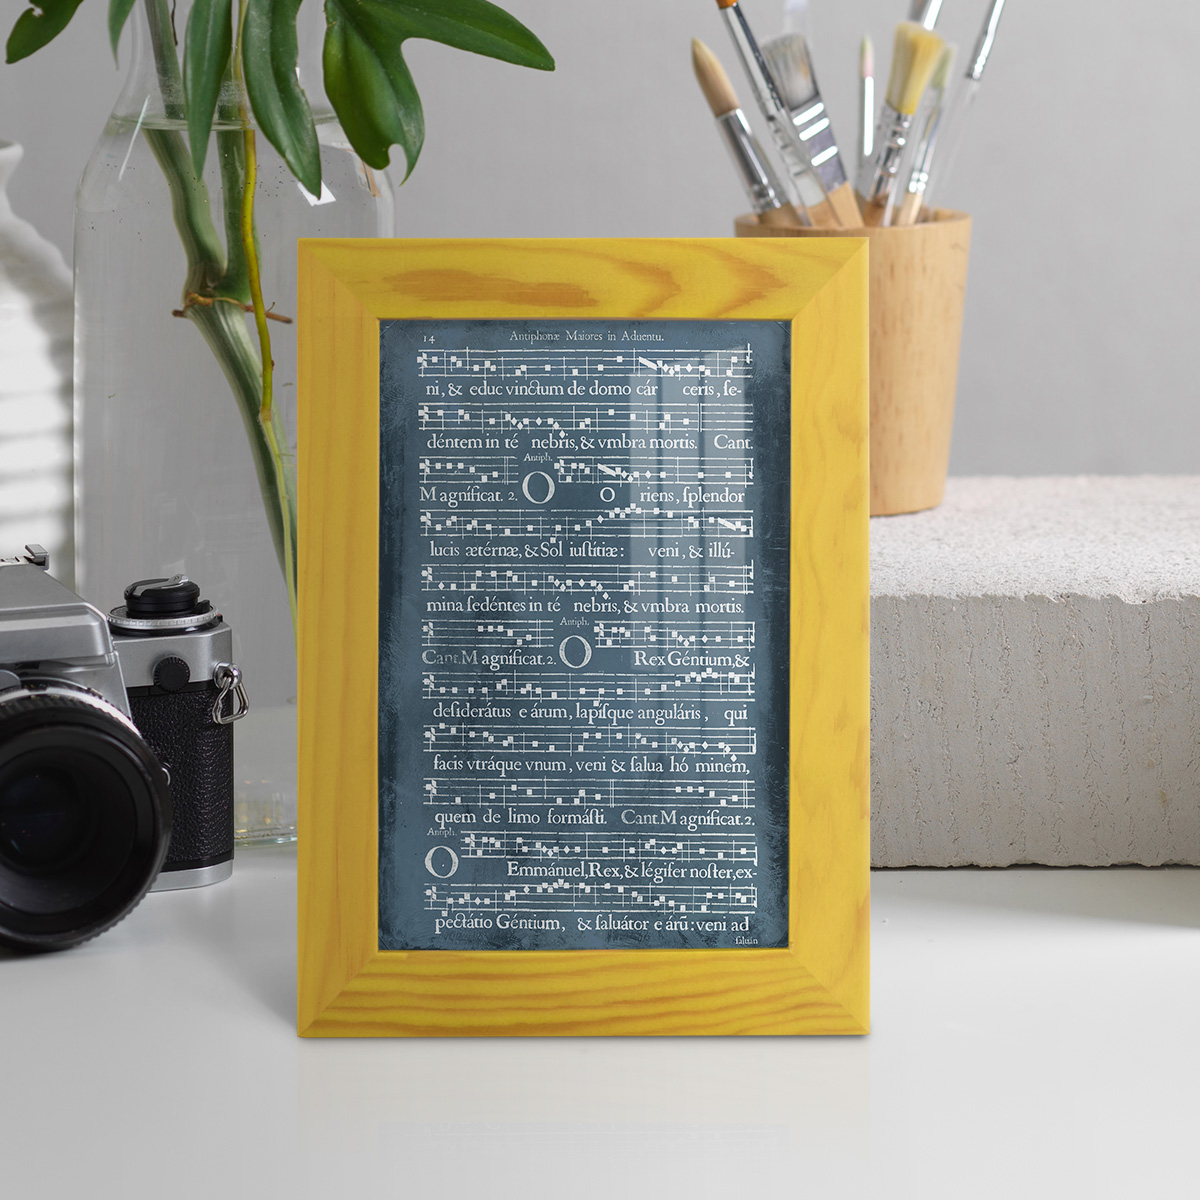 14 Antiphonæ Maiores in Aduentu.
ni, & educ vinctum de domo cár ceris, ſe-
déntem in té nebris, & vmbra mortis. Cant.
Antiph.
Magníficat. 2. O O riens, ſplendor
lucis ætérnæ, & Sol iuſtítiæ: veni, & illú-
mina ſedéntes in té nebris, & vmbra mortis.
Antiph.
Cant. Magníficat. 2. O Rex Géntium, &
deſiderátus eárum, lapíſque anguláris, qui
facis vtráque vnum, veni & ſalua hó minem,
quem de limo formáſti. Cant. Magníficat. 2.
Antiph.
O Emmánuel, Rex, & légifer noſter, ex-
pectátio Géntium, & ſaluátor eárũ: veni ad
ſaluán